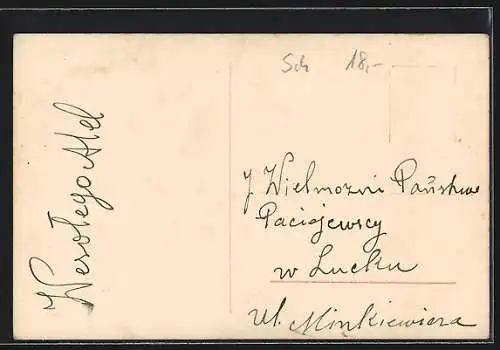 Wesołego Alel
Sch 18,-
J Wielmożni Państwo
Paciejewscy
w Łucku
ul. Minkiewicza